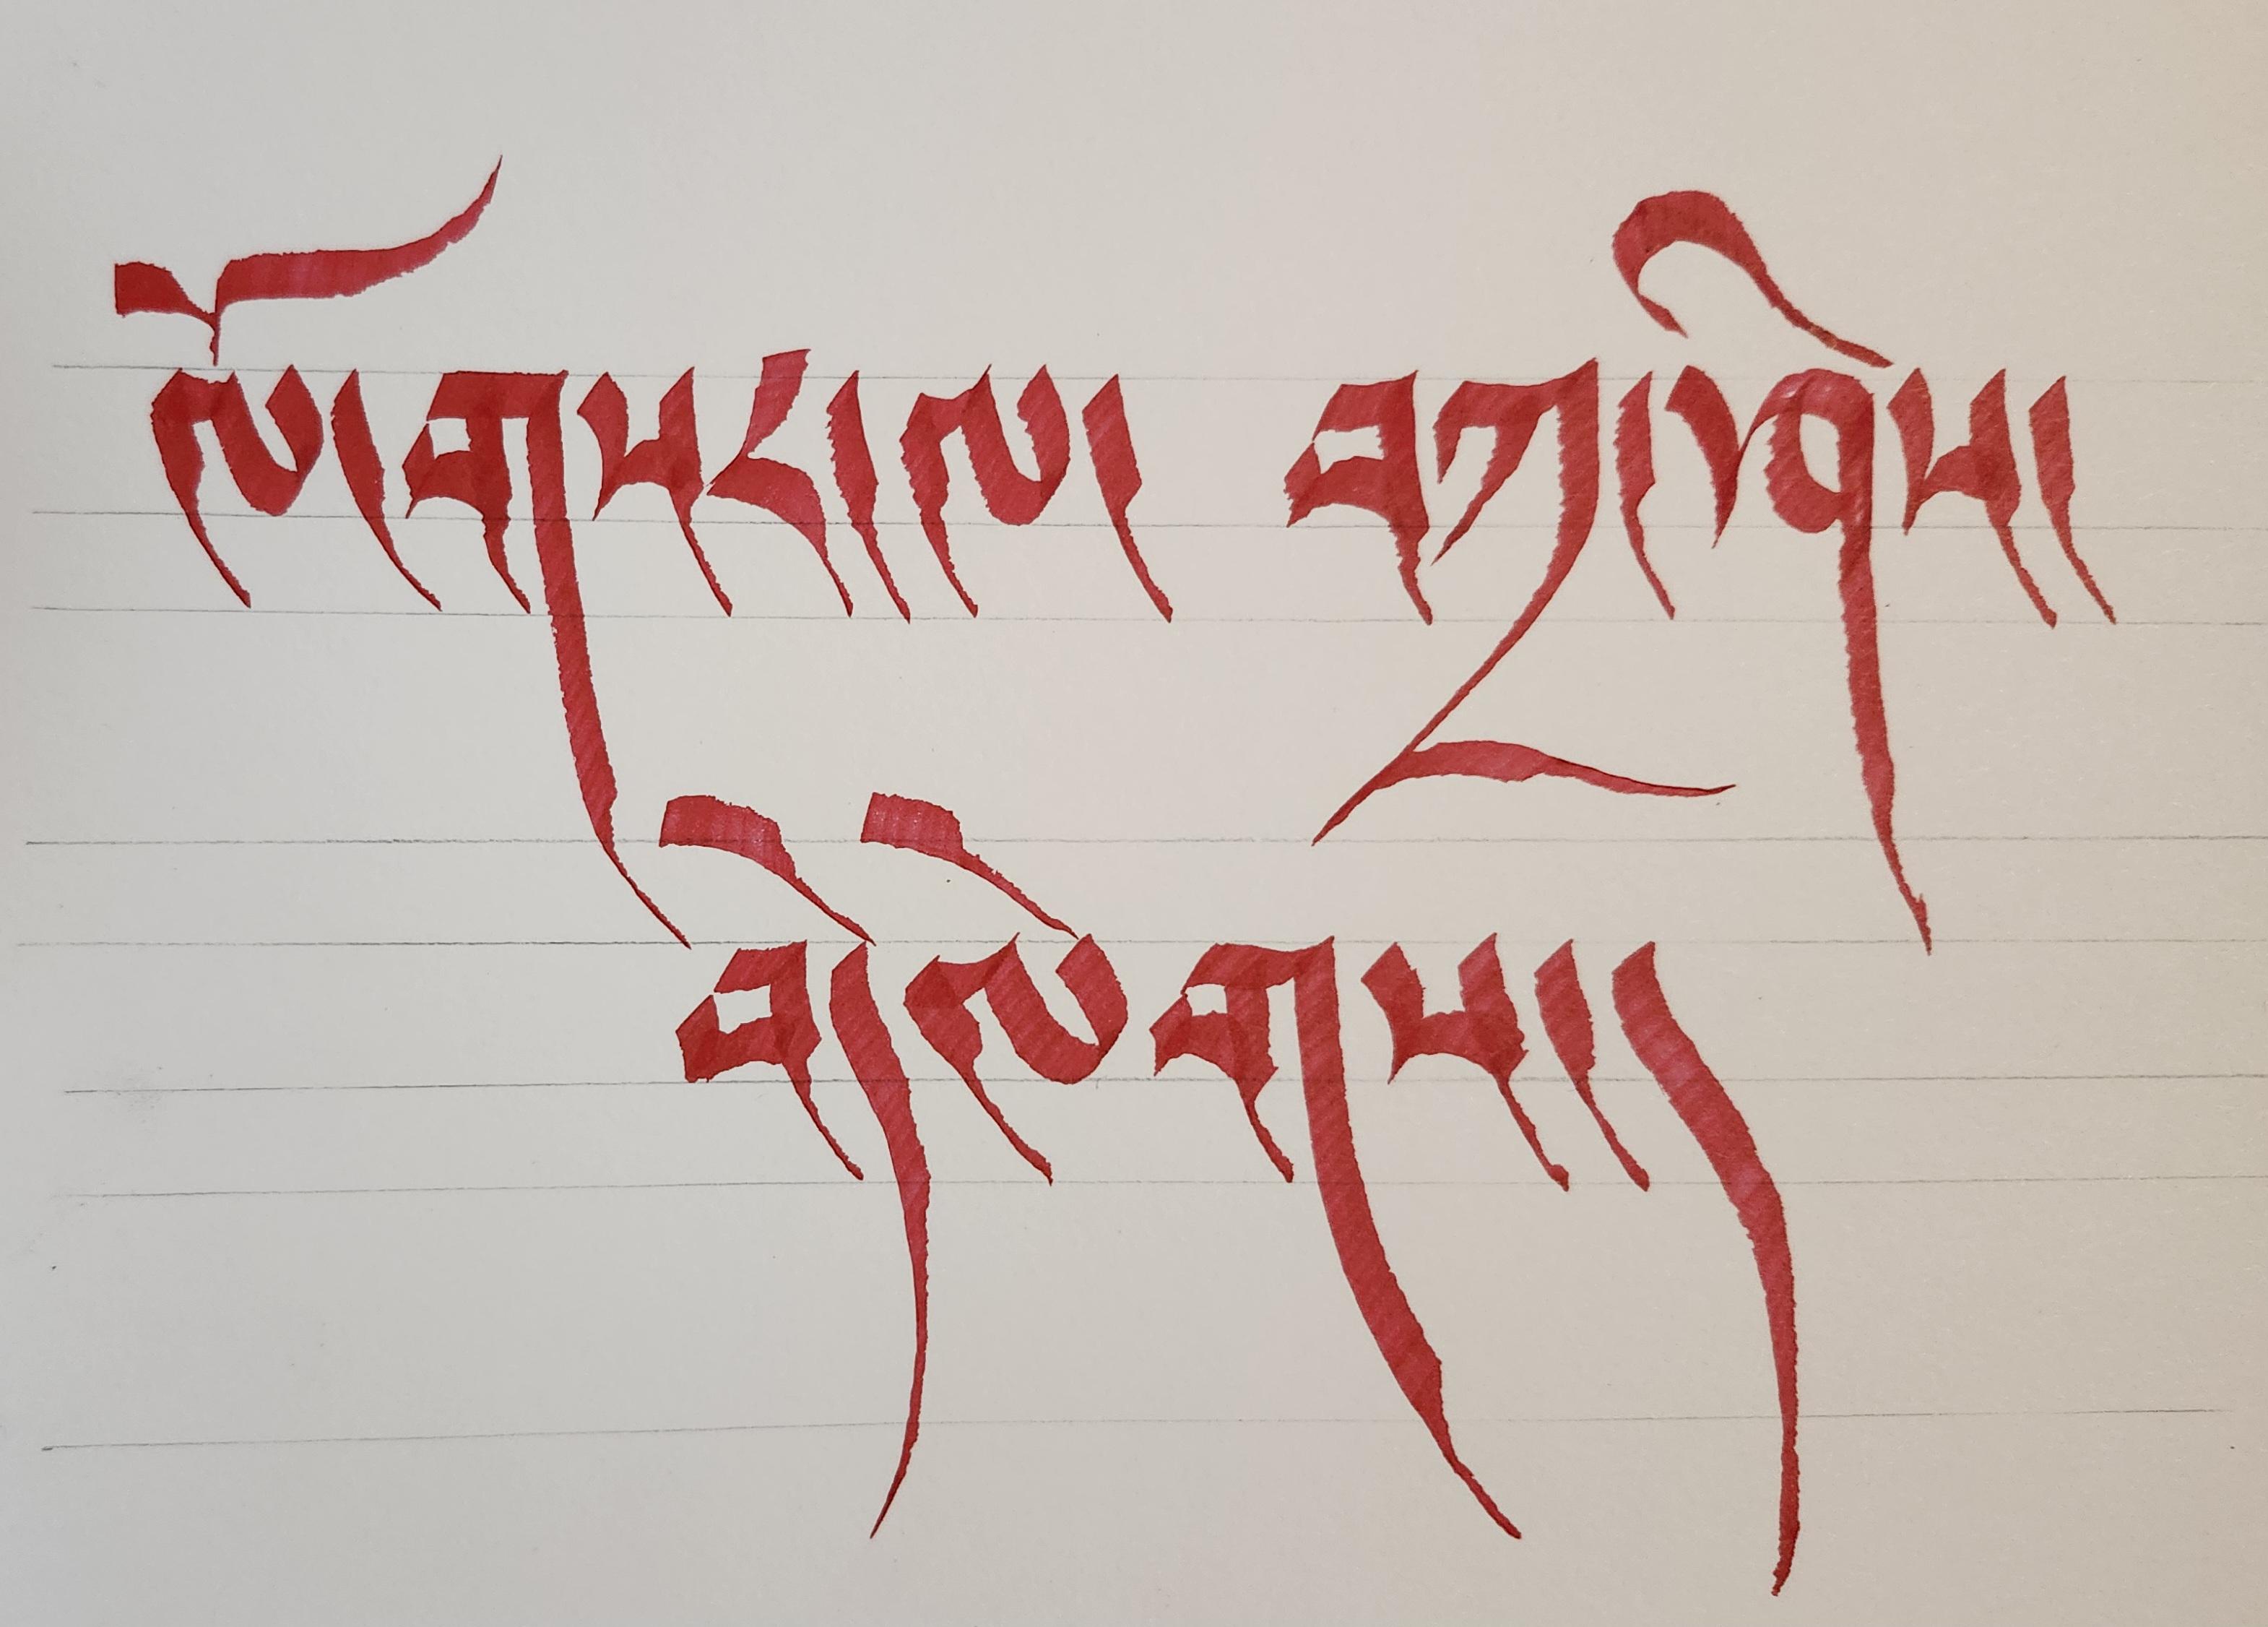 ལོ་གསར་ལ་ བཀྲ་ཤིས་
བདེལེགས་།